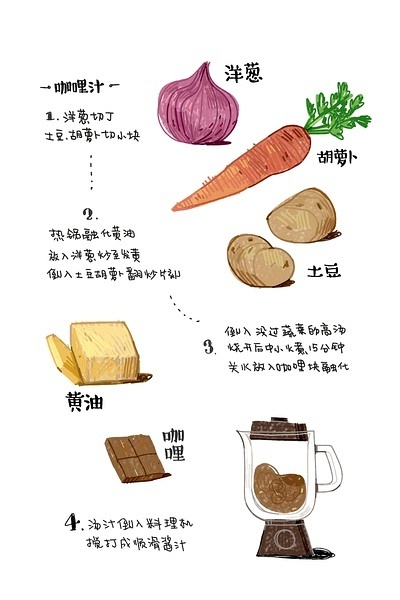 咖哩汁
洋葱
1. 洋葱切丁
土豆.胡萝卜切小块
胡萝卜
2.
热锅融化黄油
放入洋葱炒至发黄
倒入土豆胡萝卜翻炒片刻
土豆
3.
倒入没过蔬菜的高汤
烧开后中小火煮15分钟
关火放入咖哩块融化
黄油
咖哩
4. 汤汁倒入料理机
搅打成顺滑酱汁